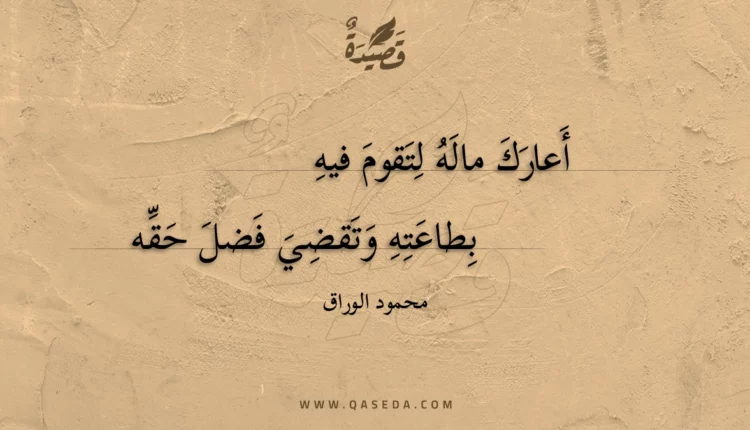 قَصِيدَةٌ
أَعارَكَ مالَهُ لِتَقومَ فيهِ
بِطاعَتِهِ وَتَقضِيَ فَضلَ حَقِّه
محمود الوراق
WWW.QASEDA.COM